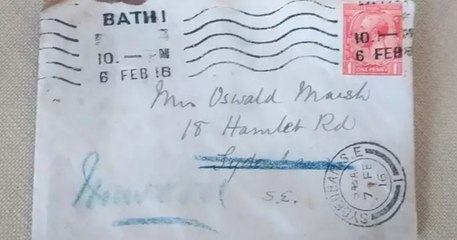 BATH
10. — PM
6 FEB 16
10.
6 FEB 16
ONE PENNY
Mrs Oswald Marsh
18 Hamlet Rd
Sydenham
S.E.
SYDENHAM S.E.
7 FE
16